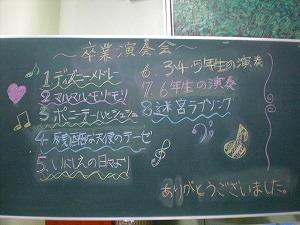 〜卒業演奏会〜
1.ディズニーメドレー
2.マル・マル・モリ・モリ
3.ポニーテールとシュシュ
4.残酷な天使のテーゼ
5.いにしえの日々より
6.3・4・5年生の演奏
7.6年生の演奏
8.迷宮ラブソング
ありがとうございました。